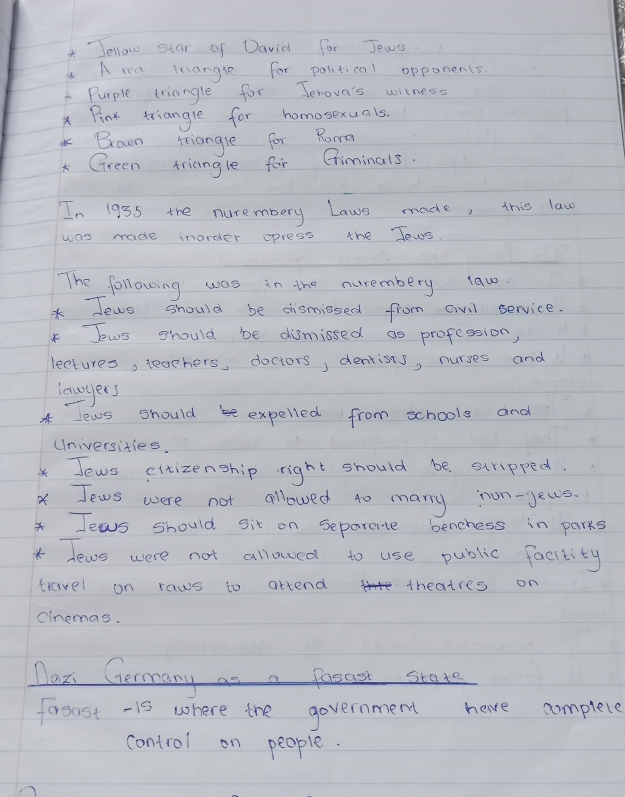 * Jellow star of David for Jews.
* A red triangle for political opponents.
- Purple triangle for Jehova's witness
* Pink triangle for homosexuals.
* Brown triangle for Roma
* Green triangle for Criminals.
In 1935 the nurembery Laws made, this law
was made inorder opress the Jews.
The following was in the nurembery law.
* Jews should be dismissed from civil service.
* Jews should be dismissed as profession,
lectures, teachers, doctors, dentists, nurses and
lawyers
* Jews should be expelled from schools and
Universities.
* Jews citizenship right should be stripped.
* Jews were not allowed to marry non-jews.
* Jews should sit on separate benchess in parks
* Jews were not allowed to use public facitity
travel on raws to attend theatres on
cinemas.
Nazi Germany as a fasast state
fasast - is where the government have complete
control on people.